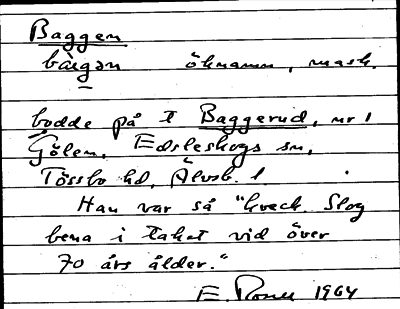 Baggen
bàigən öknamn, mask.
bodde på t Baggerud, nr 1
Gölen, Edsleskogs sn,
Tössbo hd, Älvsb. l.
Han var så "kveck. Slog
bena i taket vid över
70 års ålder."
E. 1964